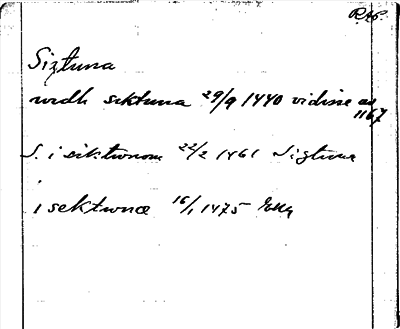 RAP.
Siztuna
widh sektuna 29/9 1440 vidisse av
1167
S. i siktwnom 22/2 1461 Sigtuna
i sektwnæ 16/1 1475